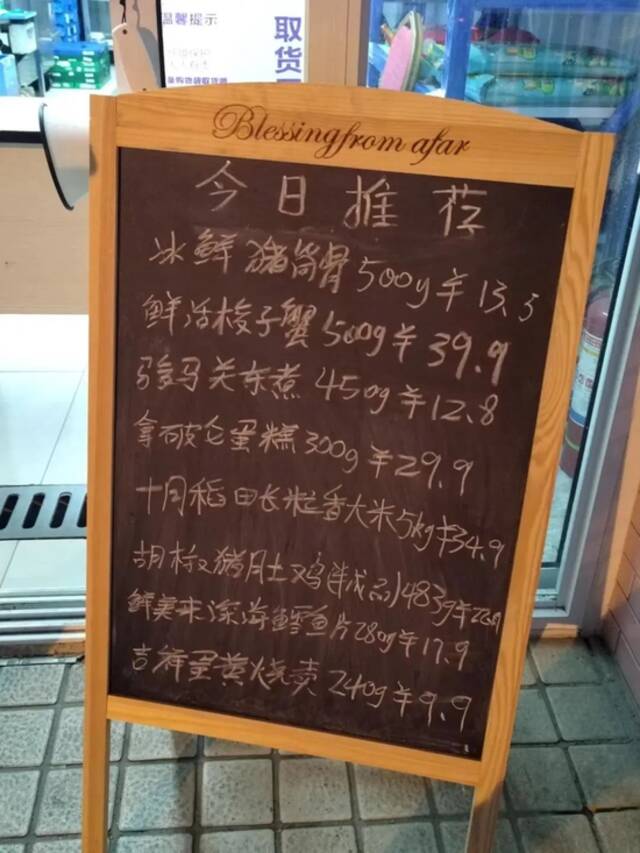 温馨提示
取货
Blessing from afar
今日推荐
冰鲜猪筒骨500g¥13.5
鲜活梭子蟹500g¥39.9
骏马关东煮450g¥12.8
拿破仑蛋糕300g¥29.9
十月稻田长粒香大米5kg¥34.9
胡椒猪肚鸡(半成品)483g
鲜美来深海鳕鱼片280g¥17.9
吉祥蛋黄烧卖240g¥9.9